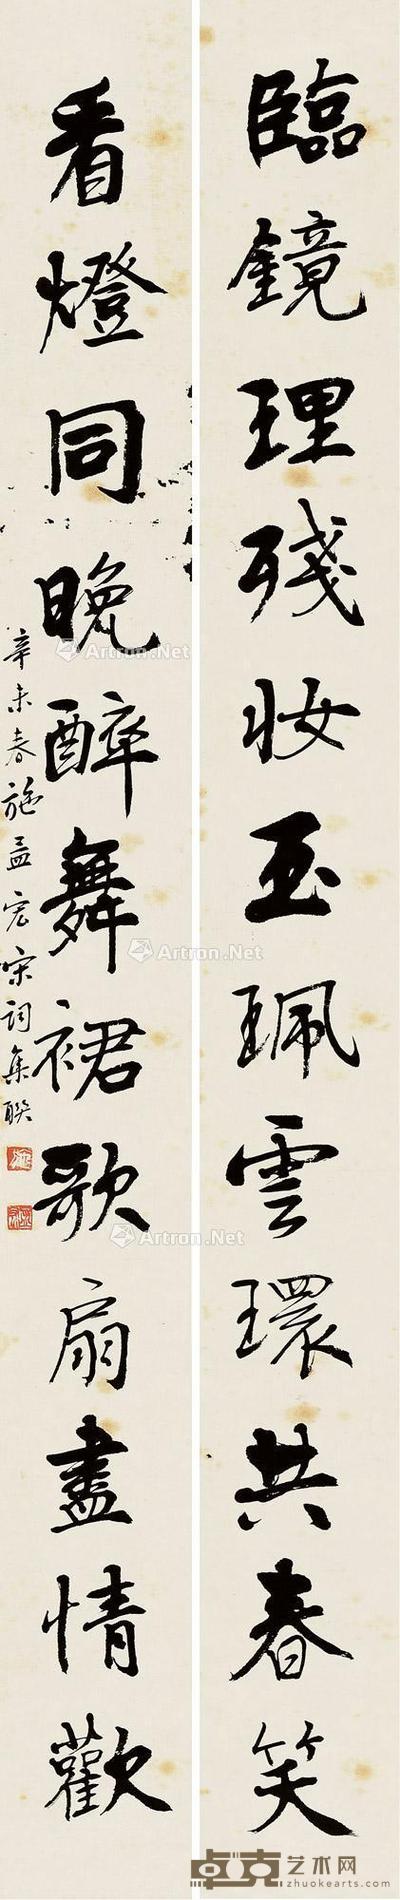 臨鏡理殘妝玉珮雲環共春笑
看燈同晚醉舞裙歌扇盡情歡
辛未春施孟宏宋詞集聯
Artron.Net
Artron.Net
Artron.Net
Artron.Net
Artron.Net
Artron.Net
卓克艺术网
zhuokearts.com